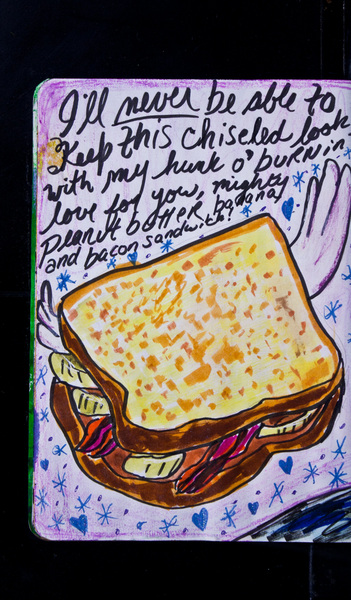 I'll never be able to
Keep this chiseled look
with my hunk o' burnin
love for you, mighty
Peanut butter, banana,
and bacon sandwich!